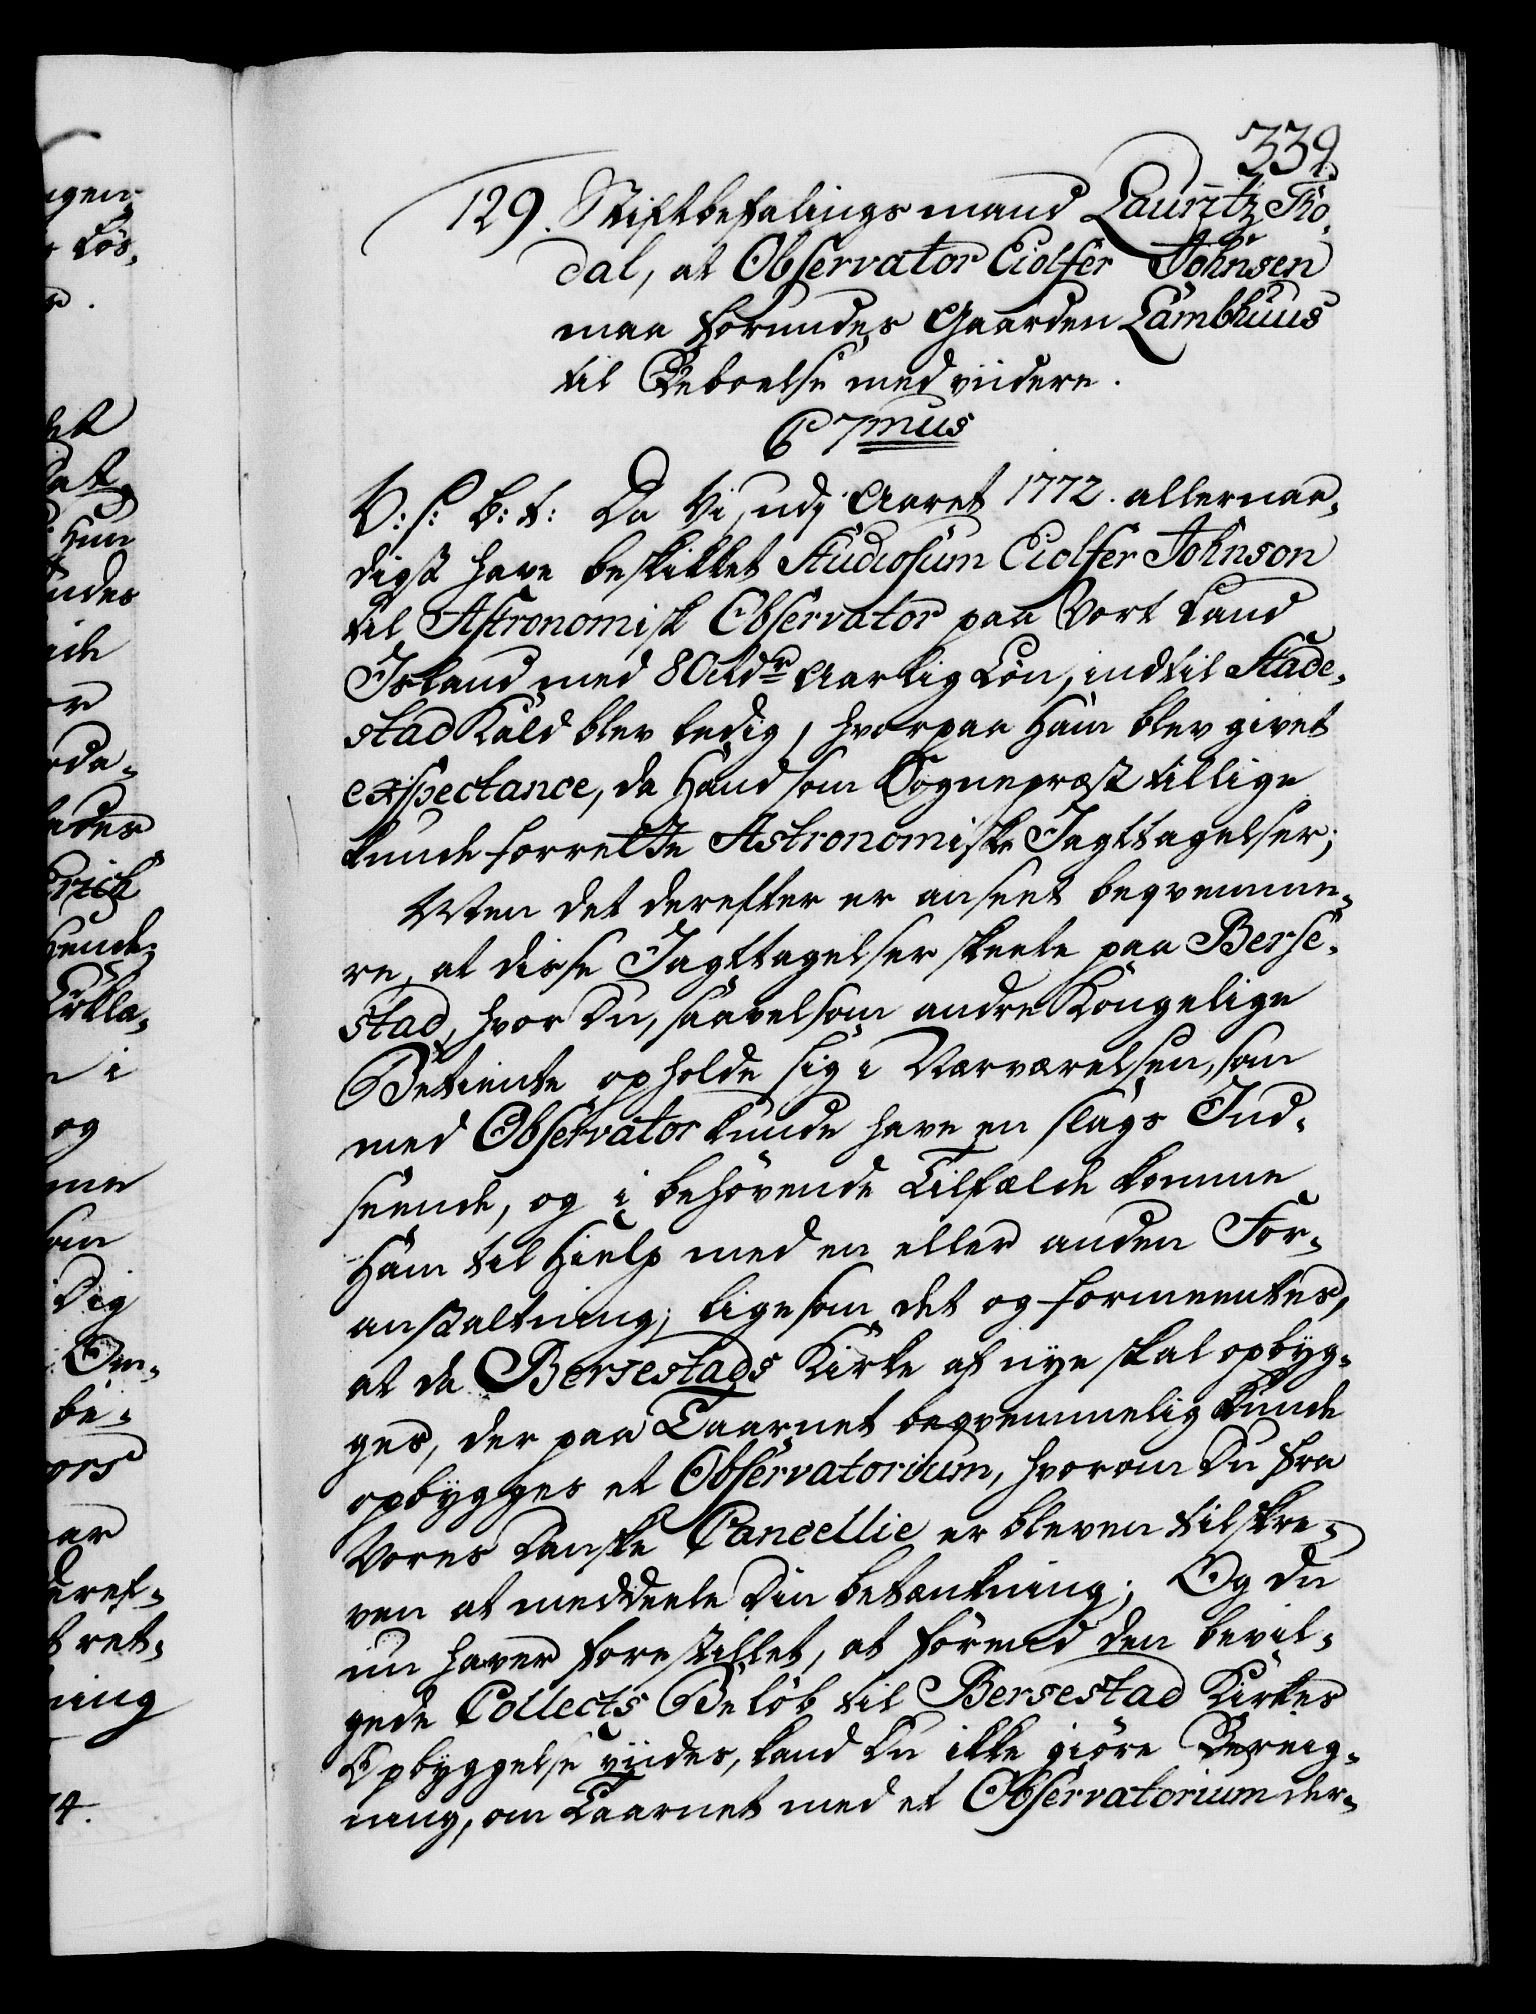 339.
129. Stiftbefalingsmand Lauritz Tho-
dal, at Observator Eiolfer Johnsen
maa forundes Gaarden Lambhuus
til Beboelse med viidere.
C 7mus
V: S: B: T: Da Vi udj Aaret 1772. allernaa-
digst have beskikket Studiosum Eiolfer Johnson
til Astronomisk Observator paa Vort Land
Island med 80 rdr Aarlig Løn, indtil Stade-
stad Kald blev ledig, hvorpaa Ham blev givet
exspectance, da Hand som Sognepræst tillige
kunde forrette Astronomiske Iagttagelser;
Men det derefter er anseet beqvemme-
re, at disse Iagttagelser skeete paa Berse-
stad, hvor Du, saavelsom andre Kongelige
Betiente opholde sig i Nærværelsen, som
med Observator kunde have en slags Ind-
seende, og i behøvende Tilfælde komme
Ham til Hielp med en eller anden For-
anstaltning; ligesom det og formeentes,
at da Bersestads Kirke af nye skal opbyg-
ges, der paa Taarnet beqvemmelig kunde
opbygges et Observatorium, hvorom Du fra
Vores Danske Cancellie er bleven tilskre-
ven at meddeele Din betænkning; Og Du
nu haver forestillet, at førend den bevil-
gede Collects Beløb til Bersestad Kirkes
Opbyggelse viides, kand Du ikke giøre Bereig-
ning, om Taarnet med et Observatorium der-
ngen
Løs,
Hun
ndes
or
Erich
i
og
Dig
Om-
be-
ar
ret-
ning
74.